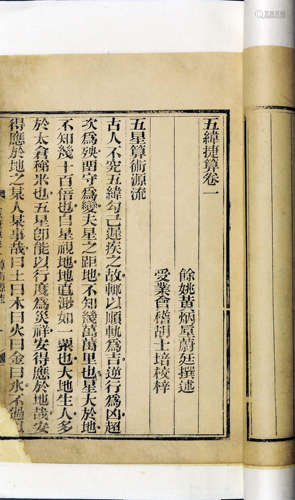 五緯捷算卷一
餘姚黃炳垕蔚廷撰述
受業會稽胡士培校梓
五星算術源流
古人不究五緯勾己遲疾之故輒以順軌為吉逆行為凶超
次為殃閏守為變夫星之距地不知幾萬萬里也星大於地
不知幾十百倍也自星視地地直渺如一粟也大地生人多
於太倉稊米也五星卽能以行度為災祥安得應於地哉安
得應於地之某人某事哉曰土曰木曰火曰金曰水不過